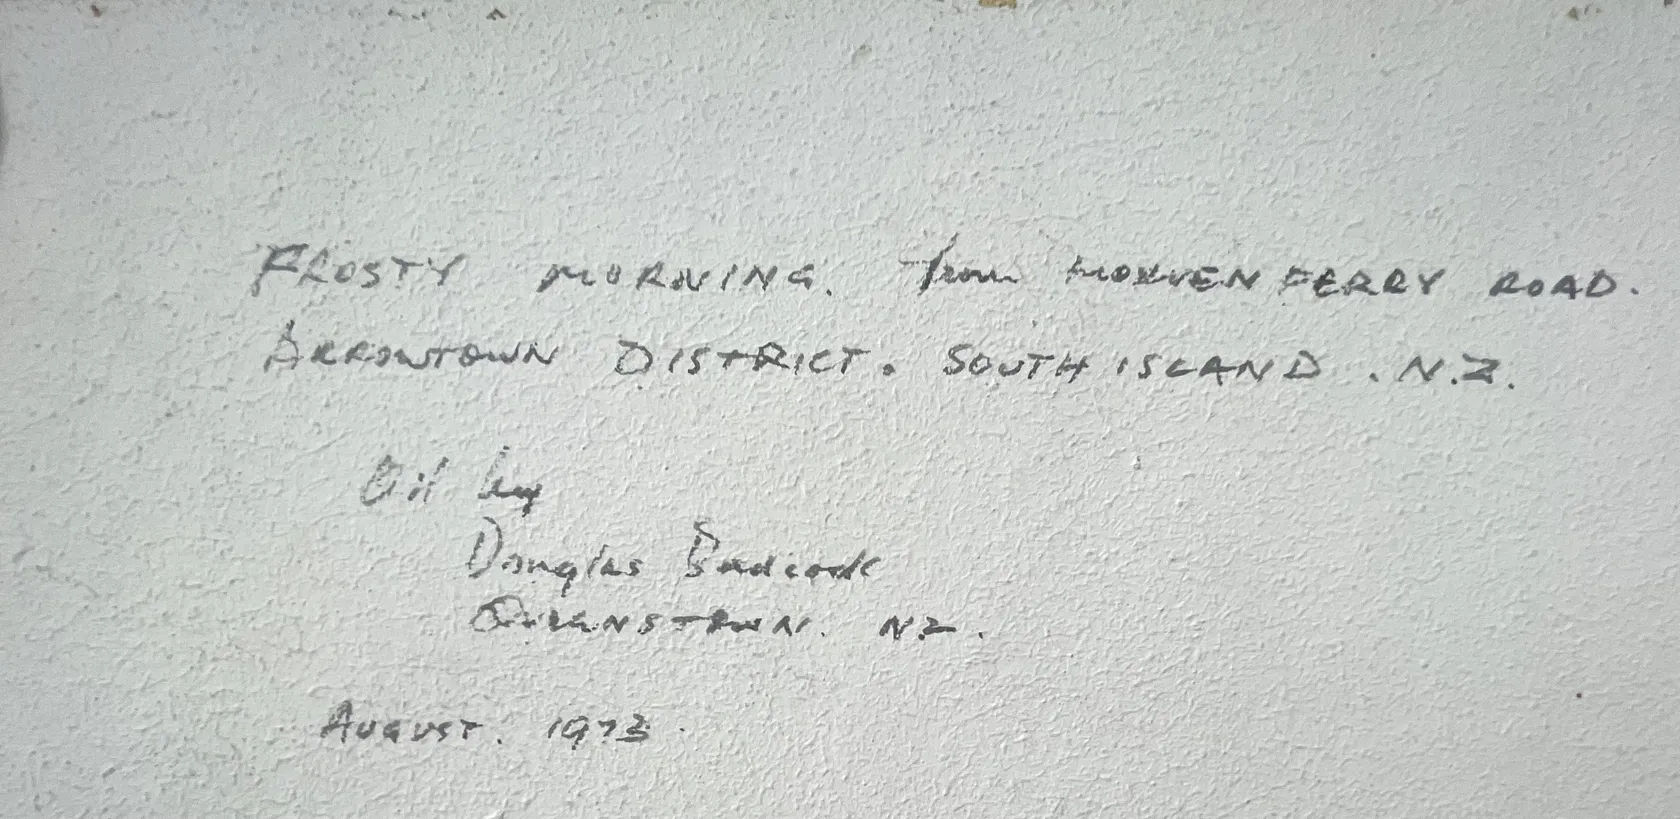 FROSTY MORNING. from MORVEN FERRY ROAD.
ARROWTOWN DISTRICT. SOUTH ISLAND. N.Z.
Oil by
Douglas Badcock
QUEENSTOWN. NZ.
AUGUST. 1973.